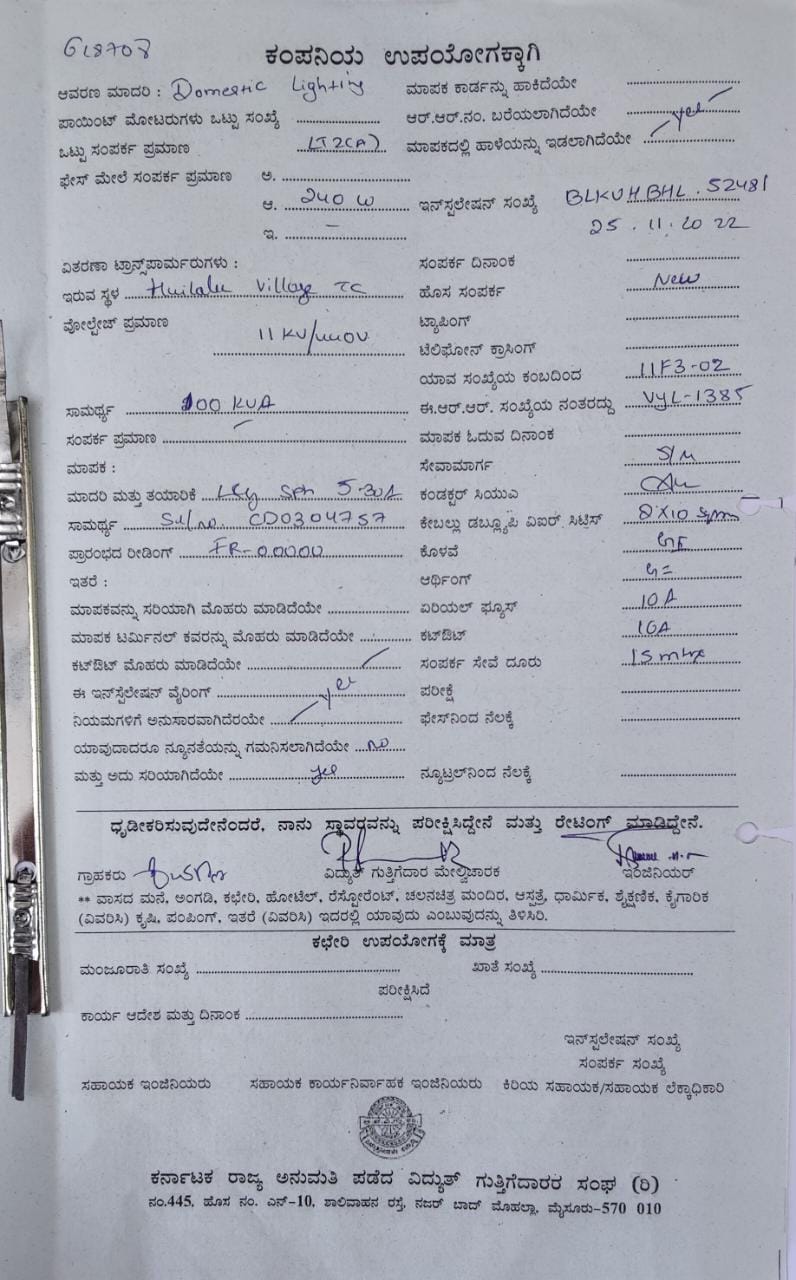 618708
ಕಂಪನಿಯ ಉಪಯೋಗಕ್ಕಾಗಿ
ಆವರಣ ಮಾದರಿ : Domestic Lighting
ಮಾಪಕ ಕಾರ್ಡನ್ನು ಹಾಕಿದೆಯೇ
ಪಾಯಿಂಟ್ ಮೋಟರುಗಳು ಒಟ್ಟು ಸಂಖ್ಯೆ
ಆರ್.ಆರ್.ನಂ. ಬರೆಯಲಾಗಿದೆಯೇ yes
ಒಟ್ಟು ಸಂಪರ್ಕ ಪ್ರಮಾಣ LT2(A)
ಮಾಪಕದಲ್ಲಿ ಹಾಳೆಯನ್ನು ಇಡಲಾಗಿದೆಯೇ
ಫೇಸ್ ಮೇಲೆ ಸಂಪರ್ಕ ಪ್ರಮಾಣ ಅ.
ಆ. 240 W
ಇನ್‌ಸ್ಟಲೇಷನ್ ಸಂಖ್ಯೆ BLKUHBHL. 52481
ಇ. –
25 . 11. 20 22
ವಿತರಣಾ ಟ್ರಾನ್ಸ್‌ಪಾರ್ಮರುಗಳು :
ಸಂಪರ್ಕ ದಿನಾಂಕ
ಇರುವ ಸ್ಥಳ Huilalu Village TC
ಹೊಸ ಸಂಪರ್ಕ New
ವೋಲ್ಟೇಜ್ ಪ್ರಮಾಣ 11 KV/440V
ಟ್ಯಾಪಿಂಗ್
ಟೆಲಿಫೋನ್ ಕ್ರಾಸಿಂಗ್
ಯಾವ ಸಂಖ್ಯೆಯ ಕಂಬದಿಂದ 11F3-02
ಸಾಮರ್ಥ್ಯ 100 KVA
ಈ.ಆರ್.ಆರ್. ಸಂಖ್ಯೆಯ ನಂತರದ್ದು VYL-1385
ಸಂಪರ್ಕ ಪ್ರಮಾಣ –
ಮಾಪಕ ಓದುವ ದಿನಾಂಕ
ಮಾಪಕ :
ಸೇವಾಮಾರ್ಗ S/M
ಮಾದರಿ ಮತ್ತು ತಯಾರಿಕೆ 5-30A
ಕಂಡಕ್ಟರ್ ಸಿಯುಎ
ಸಾಮರ್ಥ್ಯ Sl/no: CD0304757
ಕೇಬಲ್ಲು ಡಬ್ಲ್ಯೂಪಿ ವಿಐರ್ ಸಿಟ್ರಿಸ್ 2X10 Sqmm
ಪ್ರಾರಂಭದ ರೀಡಿಂಗ್ FR-00000
ಕೊಳವೆ GI
ಇತರೆ :
ಆರ್ಥಿಂಗ್
ಮಾಪಕವನ್ನು ಸರಿಯಾಗಿ ಮೊಹರು ಮಾಡಿದೆಯೇ
ಏರಿಯಲ್ ಫ್ಯೂಸ್ 10A
ಮಾಪಕ ಟರ್ಮಿನಲ್ ಕವರನ್ನು ಮೊಹರು ಮಾಡಿದೆಯೇ
ಕಟ್‌ಔಟ್ 16A
ಕಟ್‌ಔಟ್ ಮೊಹರು ಮಾಡಿದೆಯೇ
ಸಂಪರ್ಕ ಸೇವೆ ದೂರು 15 mtr
ಈ ಇನ್‌ಸ್ಟೆಲೇಷನ್ ವೈರಿಂಗ್ yes
ಪರೀಕ್ಷೆ
ನಿಯಮಗಳಿಗೆ ಅನುಸಾರವಾಗಿದೆರಯೇ
ಫೇಸ್‌ನಿಂದ ನೆಲಕ್ಕೆ
ಯಾವುದಾದರೂ ನ್ಯೂನತೆಯನ್ನು ಗಮನಿಸಲಾಗಿದೆಯೇ no
ಮತ್ತು ಅದು ಸರಿಯಾಗಿದೆಯೇ yes
ನ್ಯೂಟ್ರಲ್‌ನಿಂದ ನೆಲಕ್ಕೆ
ಧೃಡೀಕರಿಸುವುದೇನೆಂದರೆ, ನಾನು ಸ್ಥಾವರವನ್ನು ಪರೀಕ್ಷಿಸಿದ್ದೇನೆ ಮತ್ತು ರೇಟಿಂಗ್ ಮಾಡಿದ್ದೇನೆ.
ಗ್ರಾಹಕರು ವಿದ್ಯುತ್ ಗುತ್ತಿಗೆದಾರ ಮೇಲ್ವಿಚಾರಕ ಇಂಜಿನಿಯರ್
** ವಾಸದ ಮನೆ, ಅಂಗಡಿ, ಕಛೇರಿ, ಹೋಟೆಲ್, ರೆಸ್ಟೋರೆಂಟ್, ಚಲನಚಿತ್ರ ಮಂದಿರ, ಆಸ್ಪತ್ರೆ, ಧಾರ್ಮಿಕ, ಶೈಕ್ಷಣಿಕ, ಕೈಗಾರಿಕ
(ವಿವರಿಸಿ) ಕೃಷಿ, ಪಂಪಿಂಗ್, ಇತರೆ (ವಿವರಿಸಿ) ಇದರಲ್ಲಿ ಯಾವುದು ಎಂಬುವುದನ್ನು ತಿಳಿಸಿರಿ.
ಕಛೇರಿ ಉಪಯೋಗಕ್ಕೆ ಮಾತ್ರ
ಮಂಜೂರಾತಿ ಸಂಖ್ಯೆ ಖಾತೆ ಸಂಖ್ಯೆ
ಪರೀಕ್ಷಿಸಿದೆ
ಕಾರ್ಯ ಆದೇಶ ಮತ್ತು ದಿನಾಂಕ
ಇನ್‌ಸ್ಟಲೇಷನ್ ಸಂಖ್ಯೆ
ಸಂಪರ್ಕ ಸಂಖ್ಯೆ
ಸಹಾಯಕ ಇಂಜಿನಿಯರು ಸಹಾಯಕ ಕಾರ್ಯನಿರ್ವಾಹಕ ಇಂಜಿನಿಯರು ಕಿರಿಯ ಸಹಾಯಕ/ಸಹಾಯಕ ಲೆಕ್ಕಾಧಿಕಾರಿ
ಕರ್ನಾಟಕ ರಾಜ್ಯ ಅನುಮತಿ ಪಡೆದ ವಿದ್ಯುತ್ ಗುತ್ತಿಗೆದಾರರ ಸಂಘ (ರಿ)
ನಂ.445, ಹೊಸ ನಂ. ಎನ್-10, ಶಾಲಿವಾಹನ ರಸ್ತೆ, ನಜರ್ ಬಾದ್ ಮೊಹಲ್ಲಾ, ಮೈಸೂರು-570 010